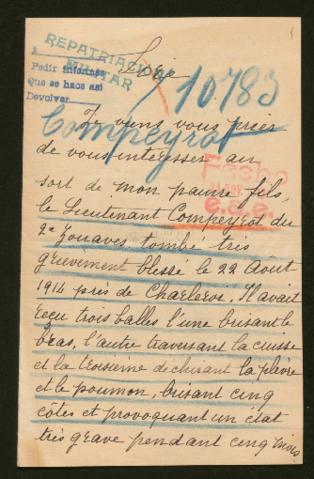 1
REPATRIACION
MILITAR
A
Pedir informes
Que se haos asi
Devolver
Sire
10.783
Je viens vous prier
Compeyrot
de vous intéresser au
sort de mon pauvre fils,
le Lieutenant Compeyrot du
2e Zouaves tombé très
grièvement blessé le 22 Août
1914 près de Charleroi. Il avait
reçu trois balles l'une brisant le
bras, l'autre traversant la cuisse
et la troisième déchirant la plèvre
et le poumon, brisant cinq
côtes et provoquant un état
très grave pendant cinq mois.